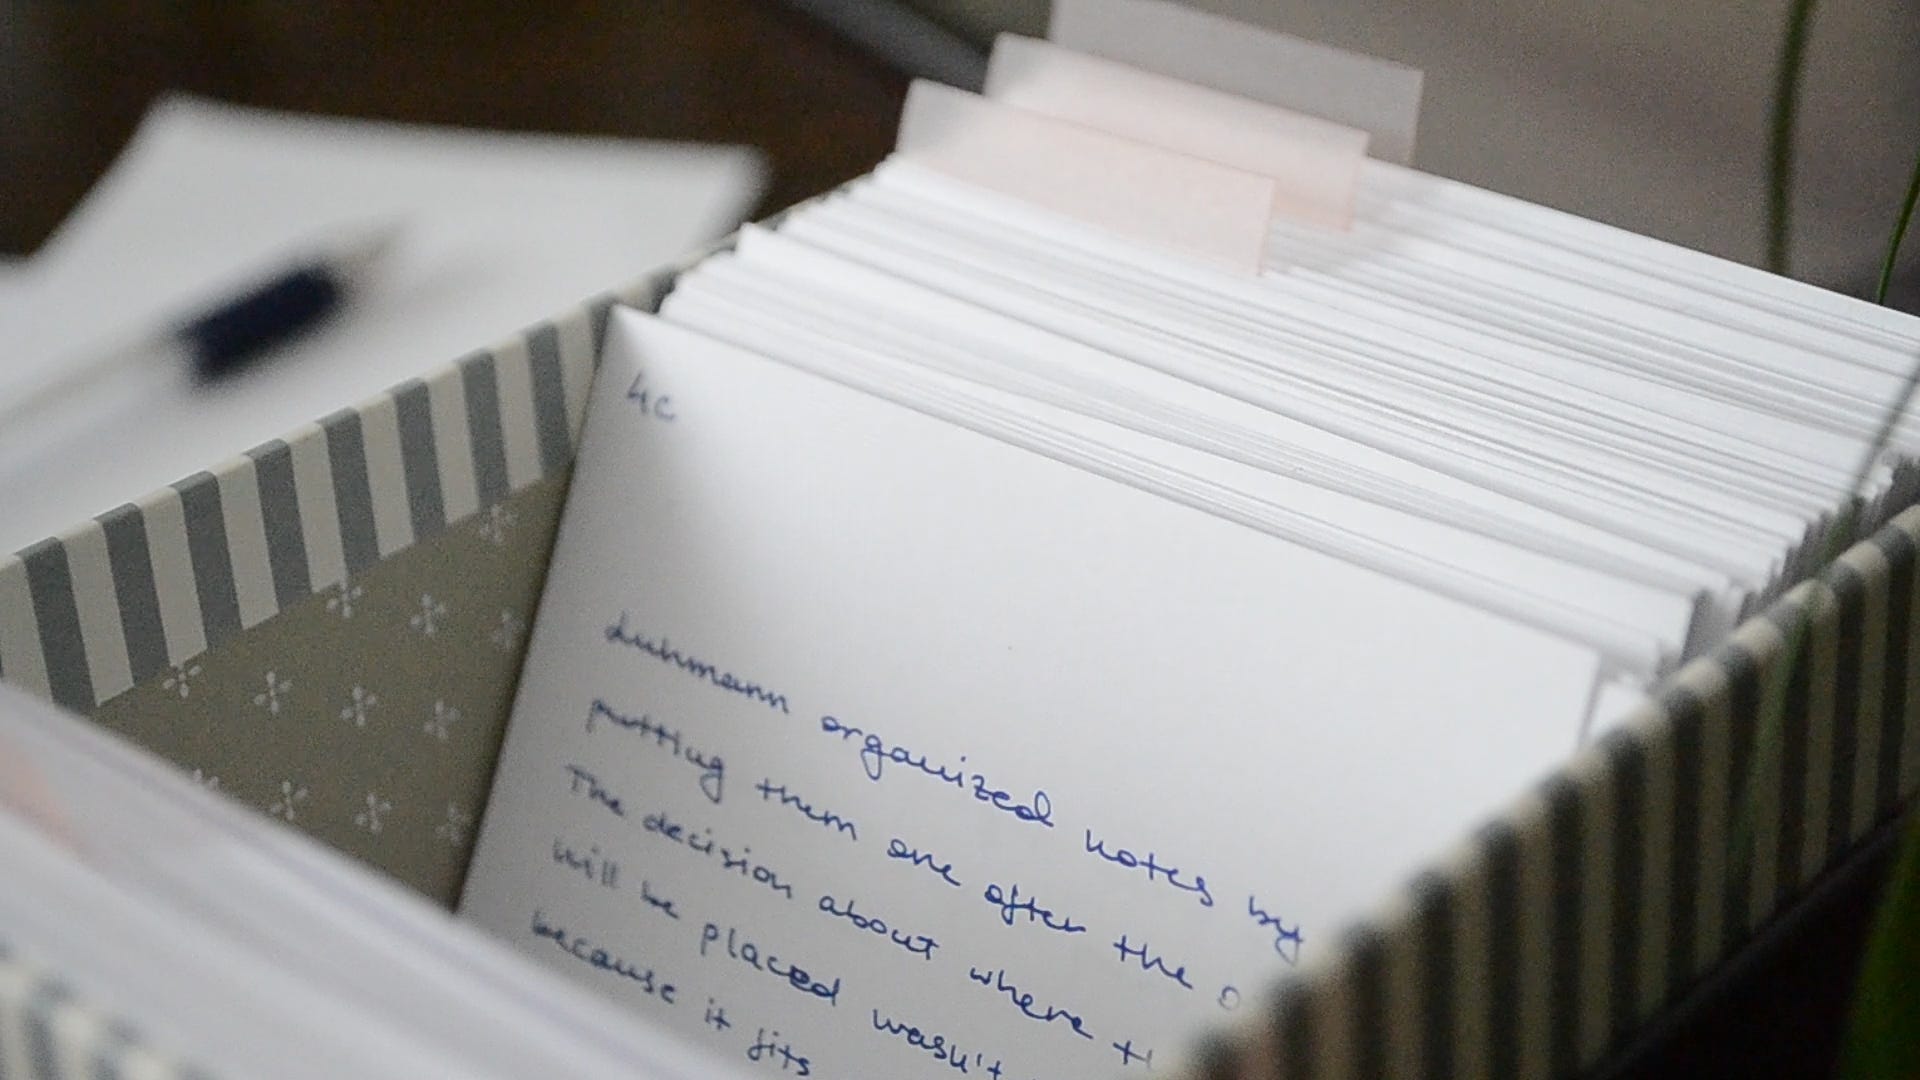 4c
Luhmann organized notes by
putting them one after the o
The decision about where th
will be placed wasn't
because it fits